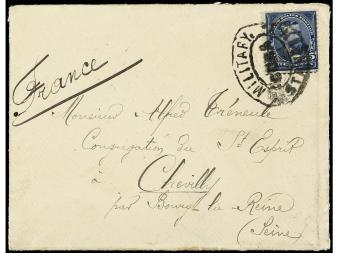 MILITARY.
STATION
France
Monsieur Alfred Tréneule
Congrégation du St Esprit
à
Chevilly
par Bourg-la-Reine
(Seine)